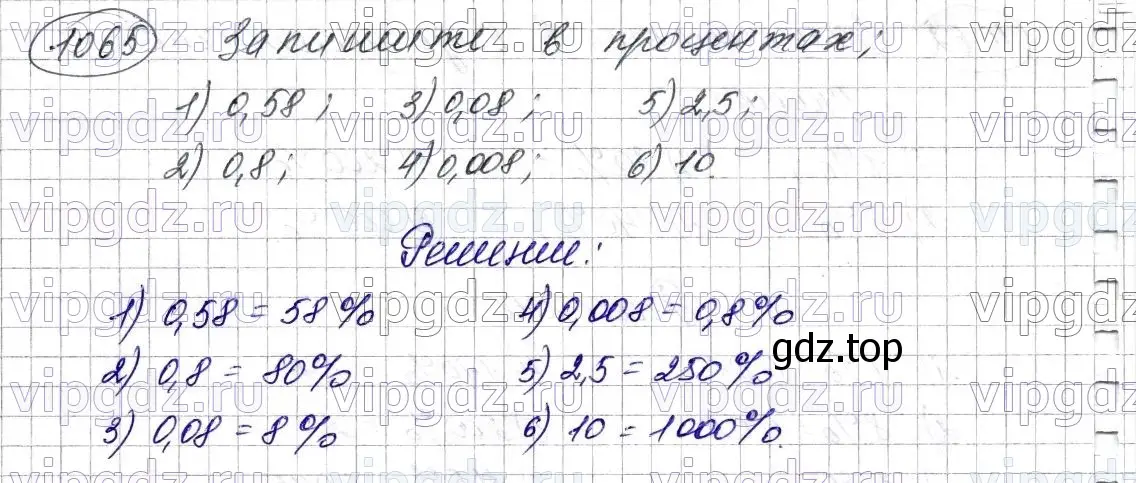 1065 Запишите в процентах;
1) 0,58; 3) 0,08; 5) 2,5;
2) 0,8; 4) 0,008; 6) 10.
Решение:
1) 0,58 = 58% 4) 0,008 = 0,8%
gdz.top
2) 0,8 = 80% 5) 2,5 = 250%
3) 0,08 = 8% 6) 10 = 1000%.
vipgdz.ru